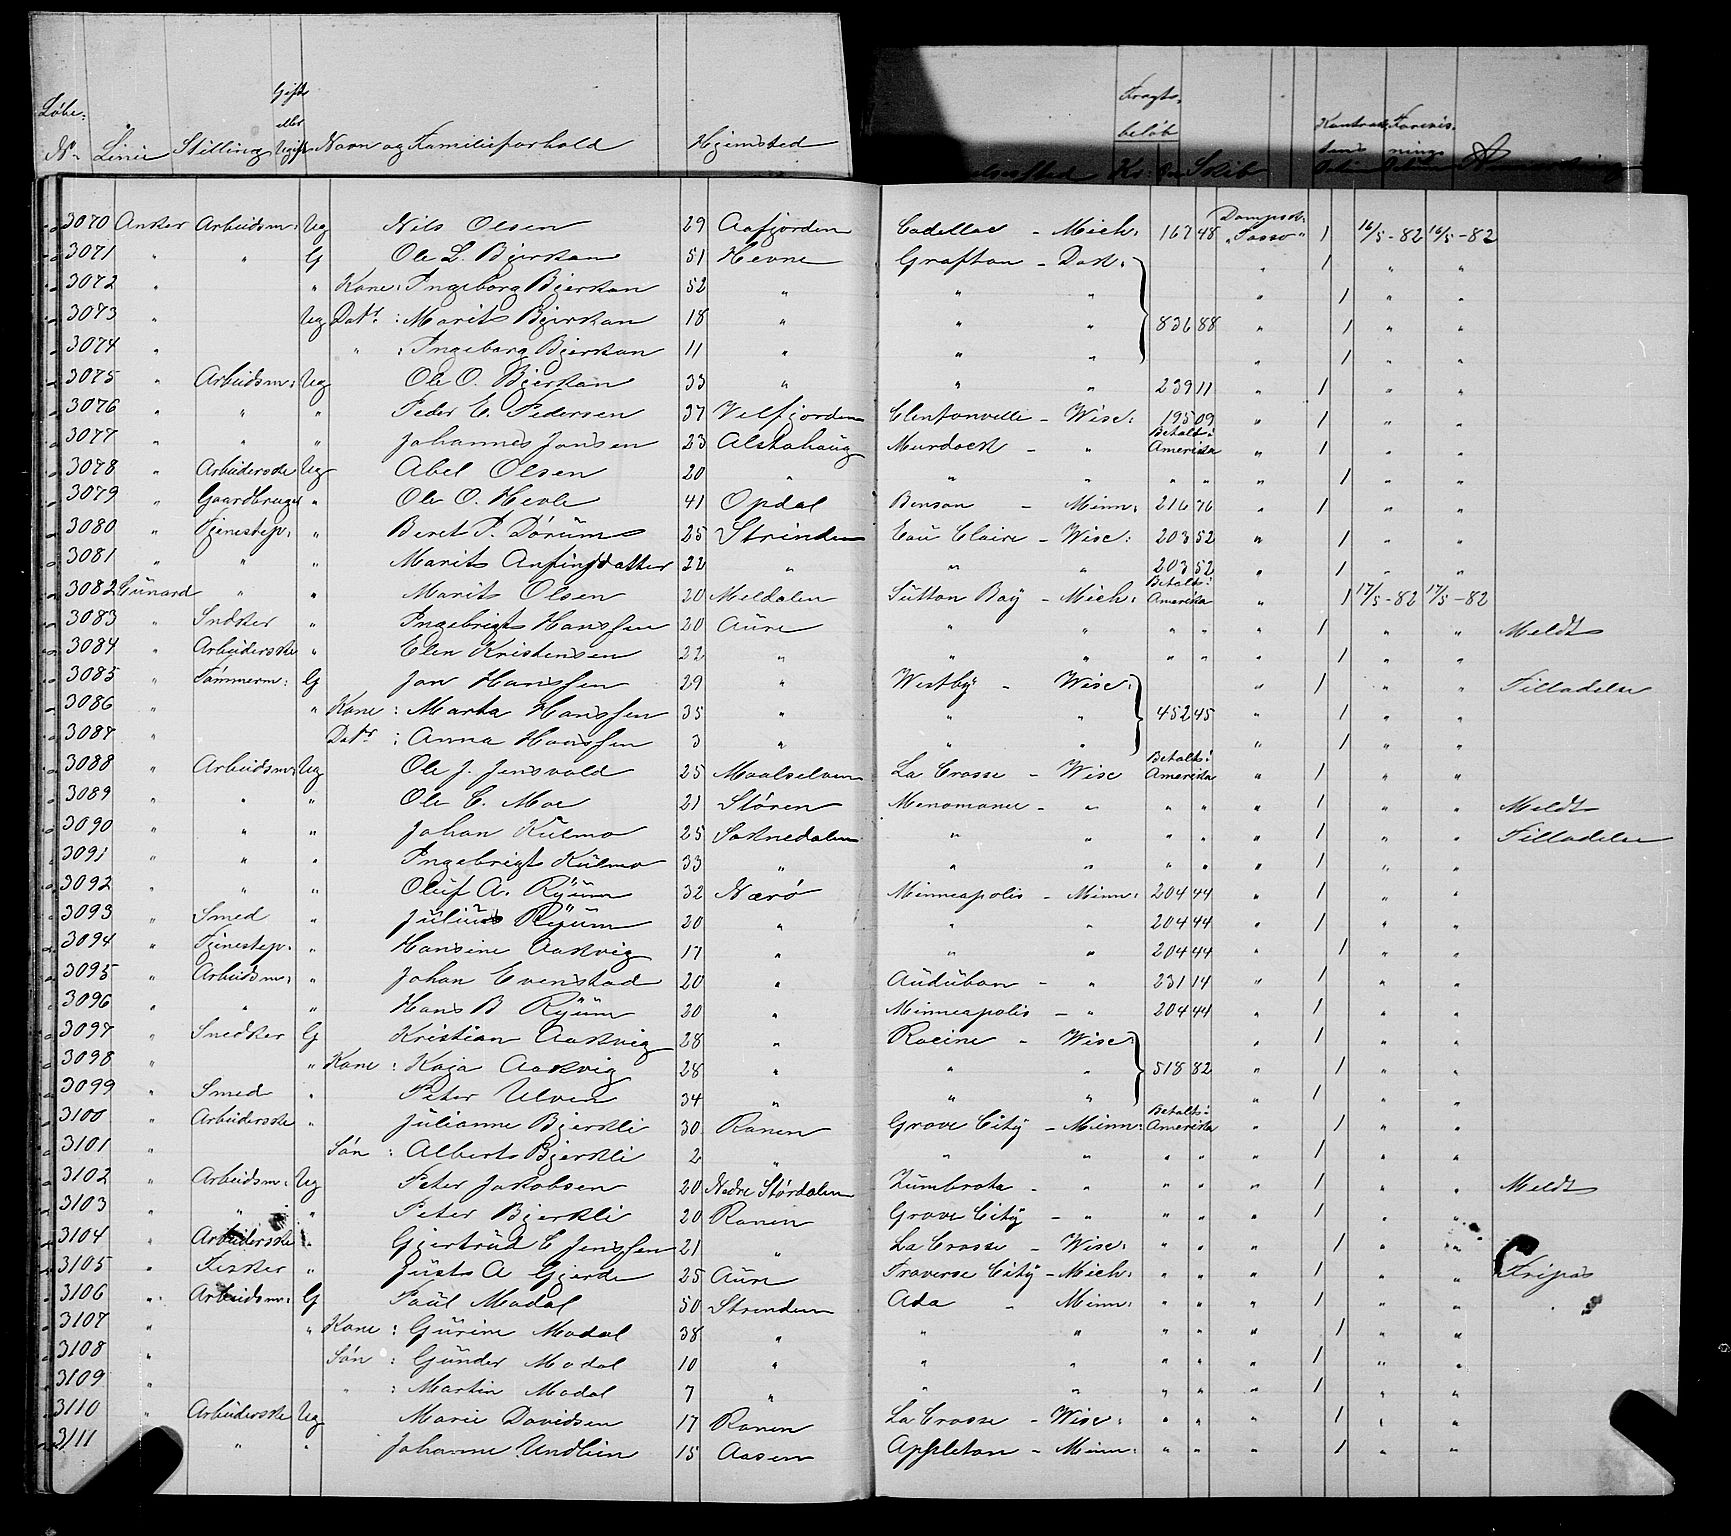 Løbe- Nr. Linie Stilling Gift eller Ugift Navn og Familieforhold Hjemsted Fragtbeløb Kr: Skib Anmærkning
3070 Anker Arbeidsm: Ug Nils Olsen 29 Aafjorden Cadellac - Mich: 167 48 Dampsk: "Tasso" 1 16/5-82 16/5-82
3071 " " G Ole L. Bjerkan 51 Hevne Grafton - Dak: " 1 " "
3072 " " Kone: Ingeborg Bjerkan 52 " " " " 1 " "
3073 " Ug Datr: Marit Bjerkan 18 " " " 836 88 " 1 " "
3074 " " : Ingeborg Bjerkan 11 " " " " 1 " "
3075 " Arbeidsm: Ug Ole O. Bjerkan 33 " " " 239 11 " 1 " "
3076 " " " Peder E. Pedersen 37 Velfjorden Clentonvelle - Wisc: 195 09 " 1 " "
3077 " " " Johannes Jonsen 23 Alstahaug Murdock - " Betalt i Amerika " 1 " "
3078 " Arbeiderske Ug Abel Olsen 20 " " " " " " 1 " "
3079 " Gaardbruger " Ole O. Hevle 41 Opdal Benson - Minn: 216 76 " 1 " "
3080 " Tjenestep: " Beret P. Dørum 25 Strinden Eau Claire - Wisc: 203 52 " 1 " "
3081 " " " Marit Anfinsdatter 22 " " " 203 52 " 1 " "
3082 Cunard " " Marit Olsen 20 Meldalen Sutton Bay - Mich: Betalt i Amerika " 1 17/5-82 17/5-82
3083 " Snedker " Ingebrigt Hanssen 20 Aure " " " " " 1 " " Meldt
3084 " Arbeiderske " Elen Kristensen 22 " " " " " " 1 " "
3085 " Tømmerm: G Jon Hanssen 29 " Westby - Wisc: " 1 " " Tilladelse
3086 " " Kone: Marta Hanssen 35 " " " 452 45 " 1 " "
3087 " Datr: Anna Hanssen 3 " " " " 1 " "
3088 " Arbeidsm: Ug Ole J. Jensvold 25 Maalselven La Crosse - Wisc Betalt i Amerika " 1 " "
3089 " " " Ole C. Moe 21 Støren Menomonee - " " " " 1 " " Meldt
3090 " " " Johan Kulmo 25 Soknedalen " " " " " 1 " " Tilladelse
3091 " " " Ingebrigt Kulmo 33 " " " " " " 1 " "
3092 " " " Oluf A. Ryum 32 Nærø Minneapolis - Minn: 204 44 " 1 " "
3093 " Smed " Julius Ryum 20 " " " 204 44 " 1 " "
3094 " Tjenestep: " Hansine Aakvig 17 " " " 204 44 " 1 " "
3095 " Arbeidsm: " Johan Evenstad 20 " Audubon - " 231 14 " 1 " "
3096 " " " Hans B Ryum 20 " Minneapolis - " 204 44 " 1 " "
3097 " Snedker G Kristian Aakvig 28 " Racine - Wisc " 1 " "
3098 " " Kone: Kaja Aakvig 28 " " " 518 82 " 1 " "
3099 " Smed " Peter Ulven 34 " " " " 1 " "
3100 " Arbeiderske " Julianne Bjerkli 30 Ranen Grove City - Minn: Betalt i Amerika " 1 " "
3101 " Søn: Albert Bjerkli 2 " " " " " " 1 " "
3102 " Arbeidsm: Ug Peter Jakobsen 20 Nedre Størdalen Zumbrota - " " " " 1 " " Meldt
3103 " " " Peter Bjerkli 20 Ranen Grove City - " " " " 1 " "
3104 " Arbeiderske " Gjertrud C Jenssen 21 " La Crosse - Wisc: " " " 1 " "
3105 " Fisker " Just A Gjerde 25 Aure Traverse City - Mich: " " " 1 " " Fripas
3106 " Arbeidsm: G Paul Modal 50 Strinden Ada - Minn: " " " 1 " "
3107 " " Kone: Gurine Modal 38 " " " " " " 1 " "
3108 " Søn: Gunder Modal 10 " " " " " " 1 " "
3109 " " : Martin Modal 7 " " " " " " 1 " "
3110 " Arbeiderske Ug Marie Davidsen 17 Ranen La Crosse - Wisc: " " " 1 " "
3111 " " Johanne Undlien 15 Aasen Appleton - Minn: " " " 1 " "